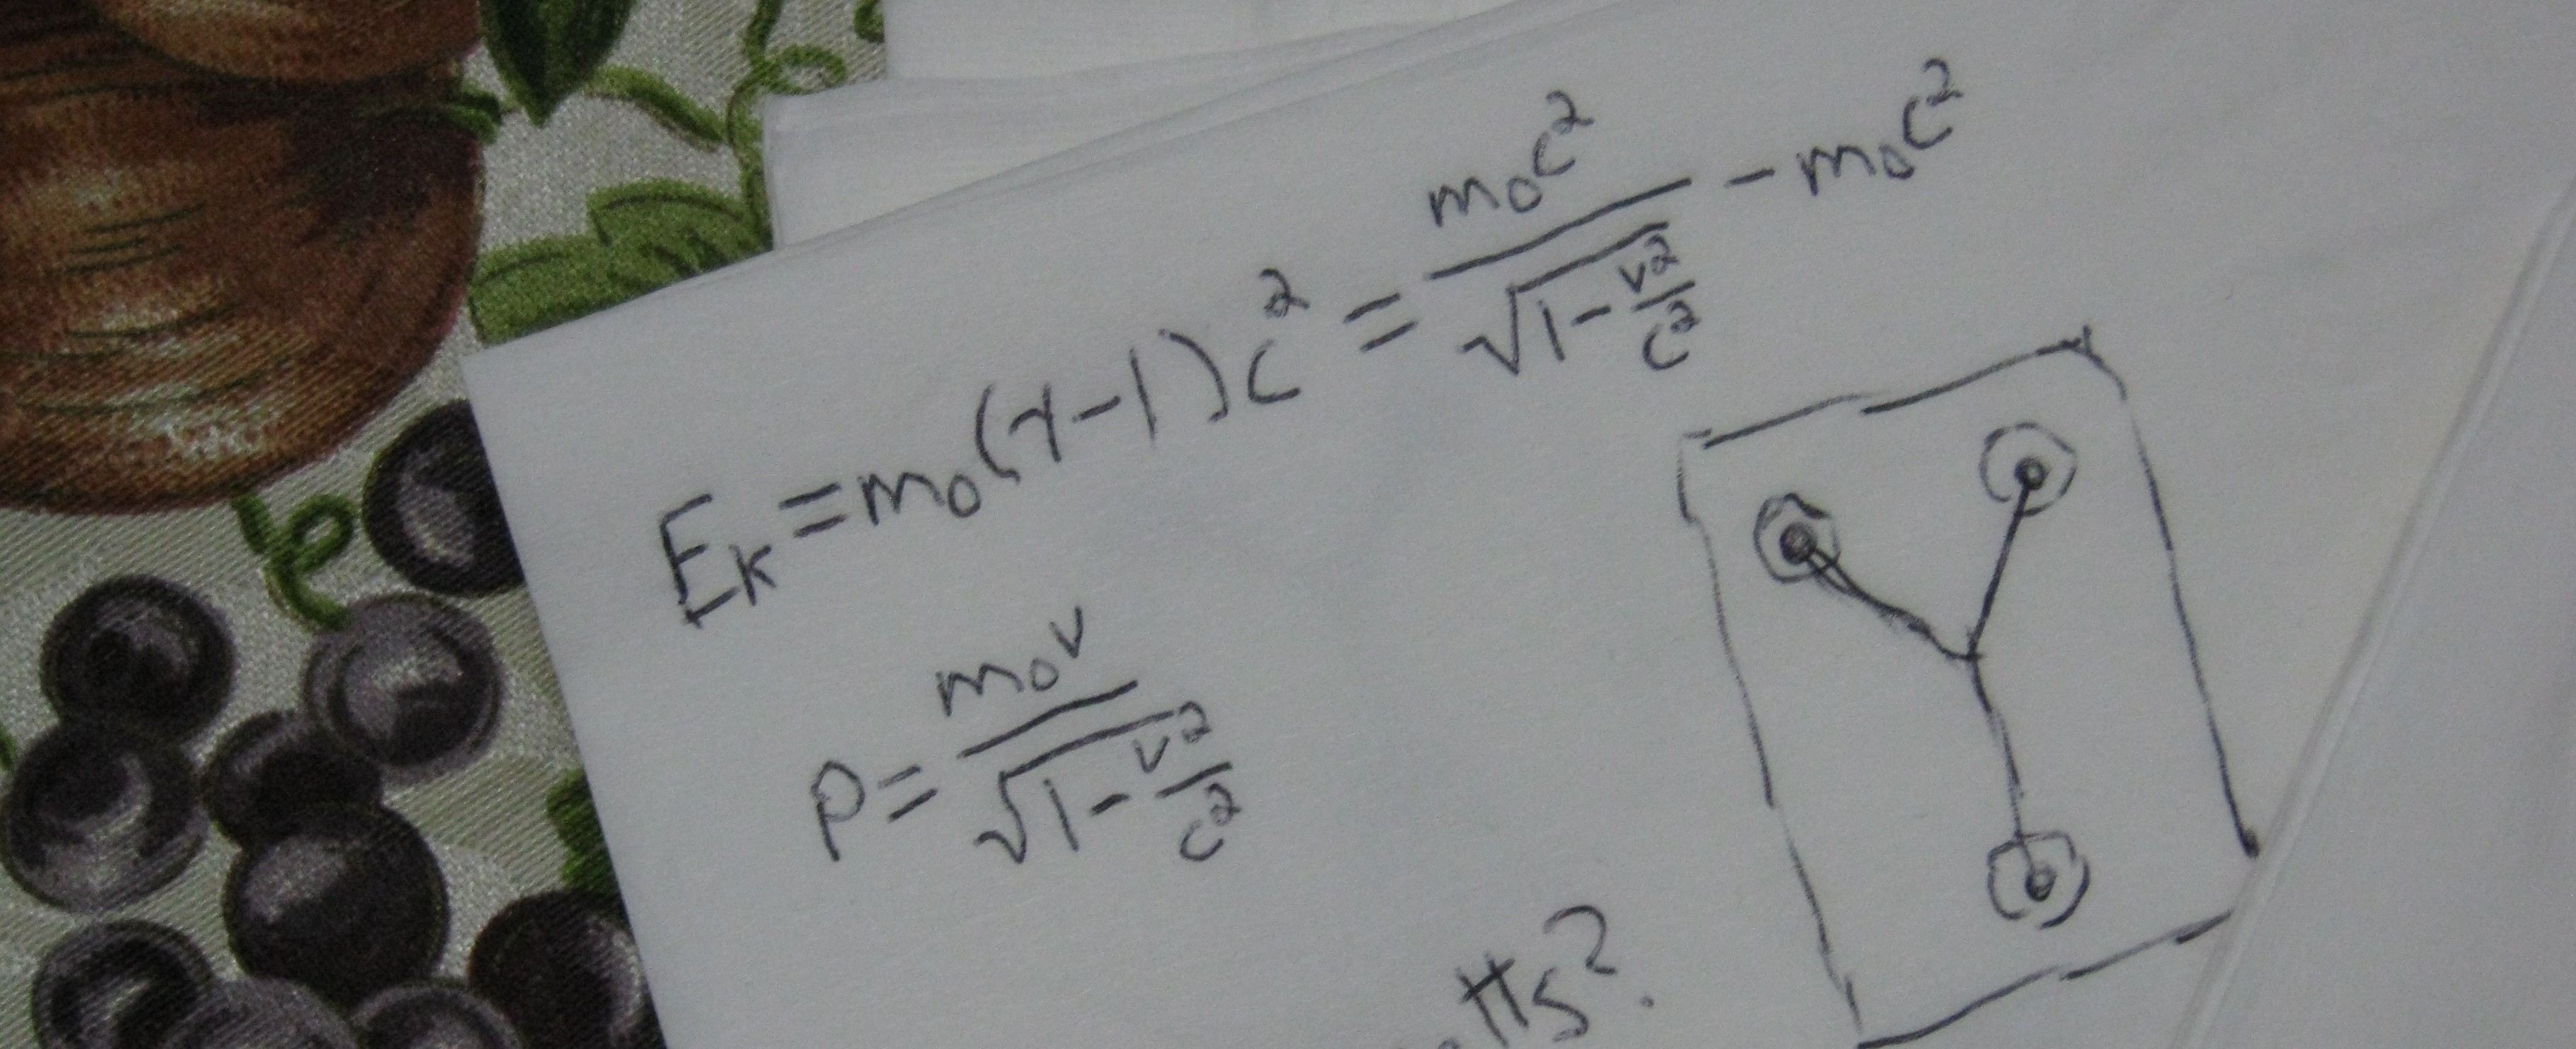 E_K = m_0(γ-1)c^2 = \frac{m_0c^2}{\sqrt{1-\frac{v^2}{c^2}}} - m_0c^2
p = \frac{m_0v}{\sqrt{1-\frac{v^2}{c^2}}}